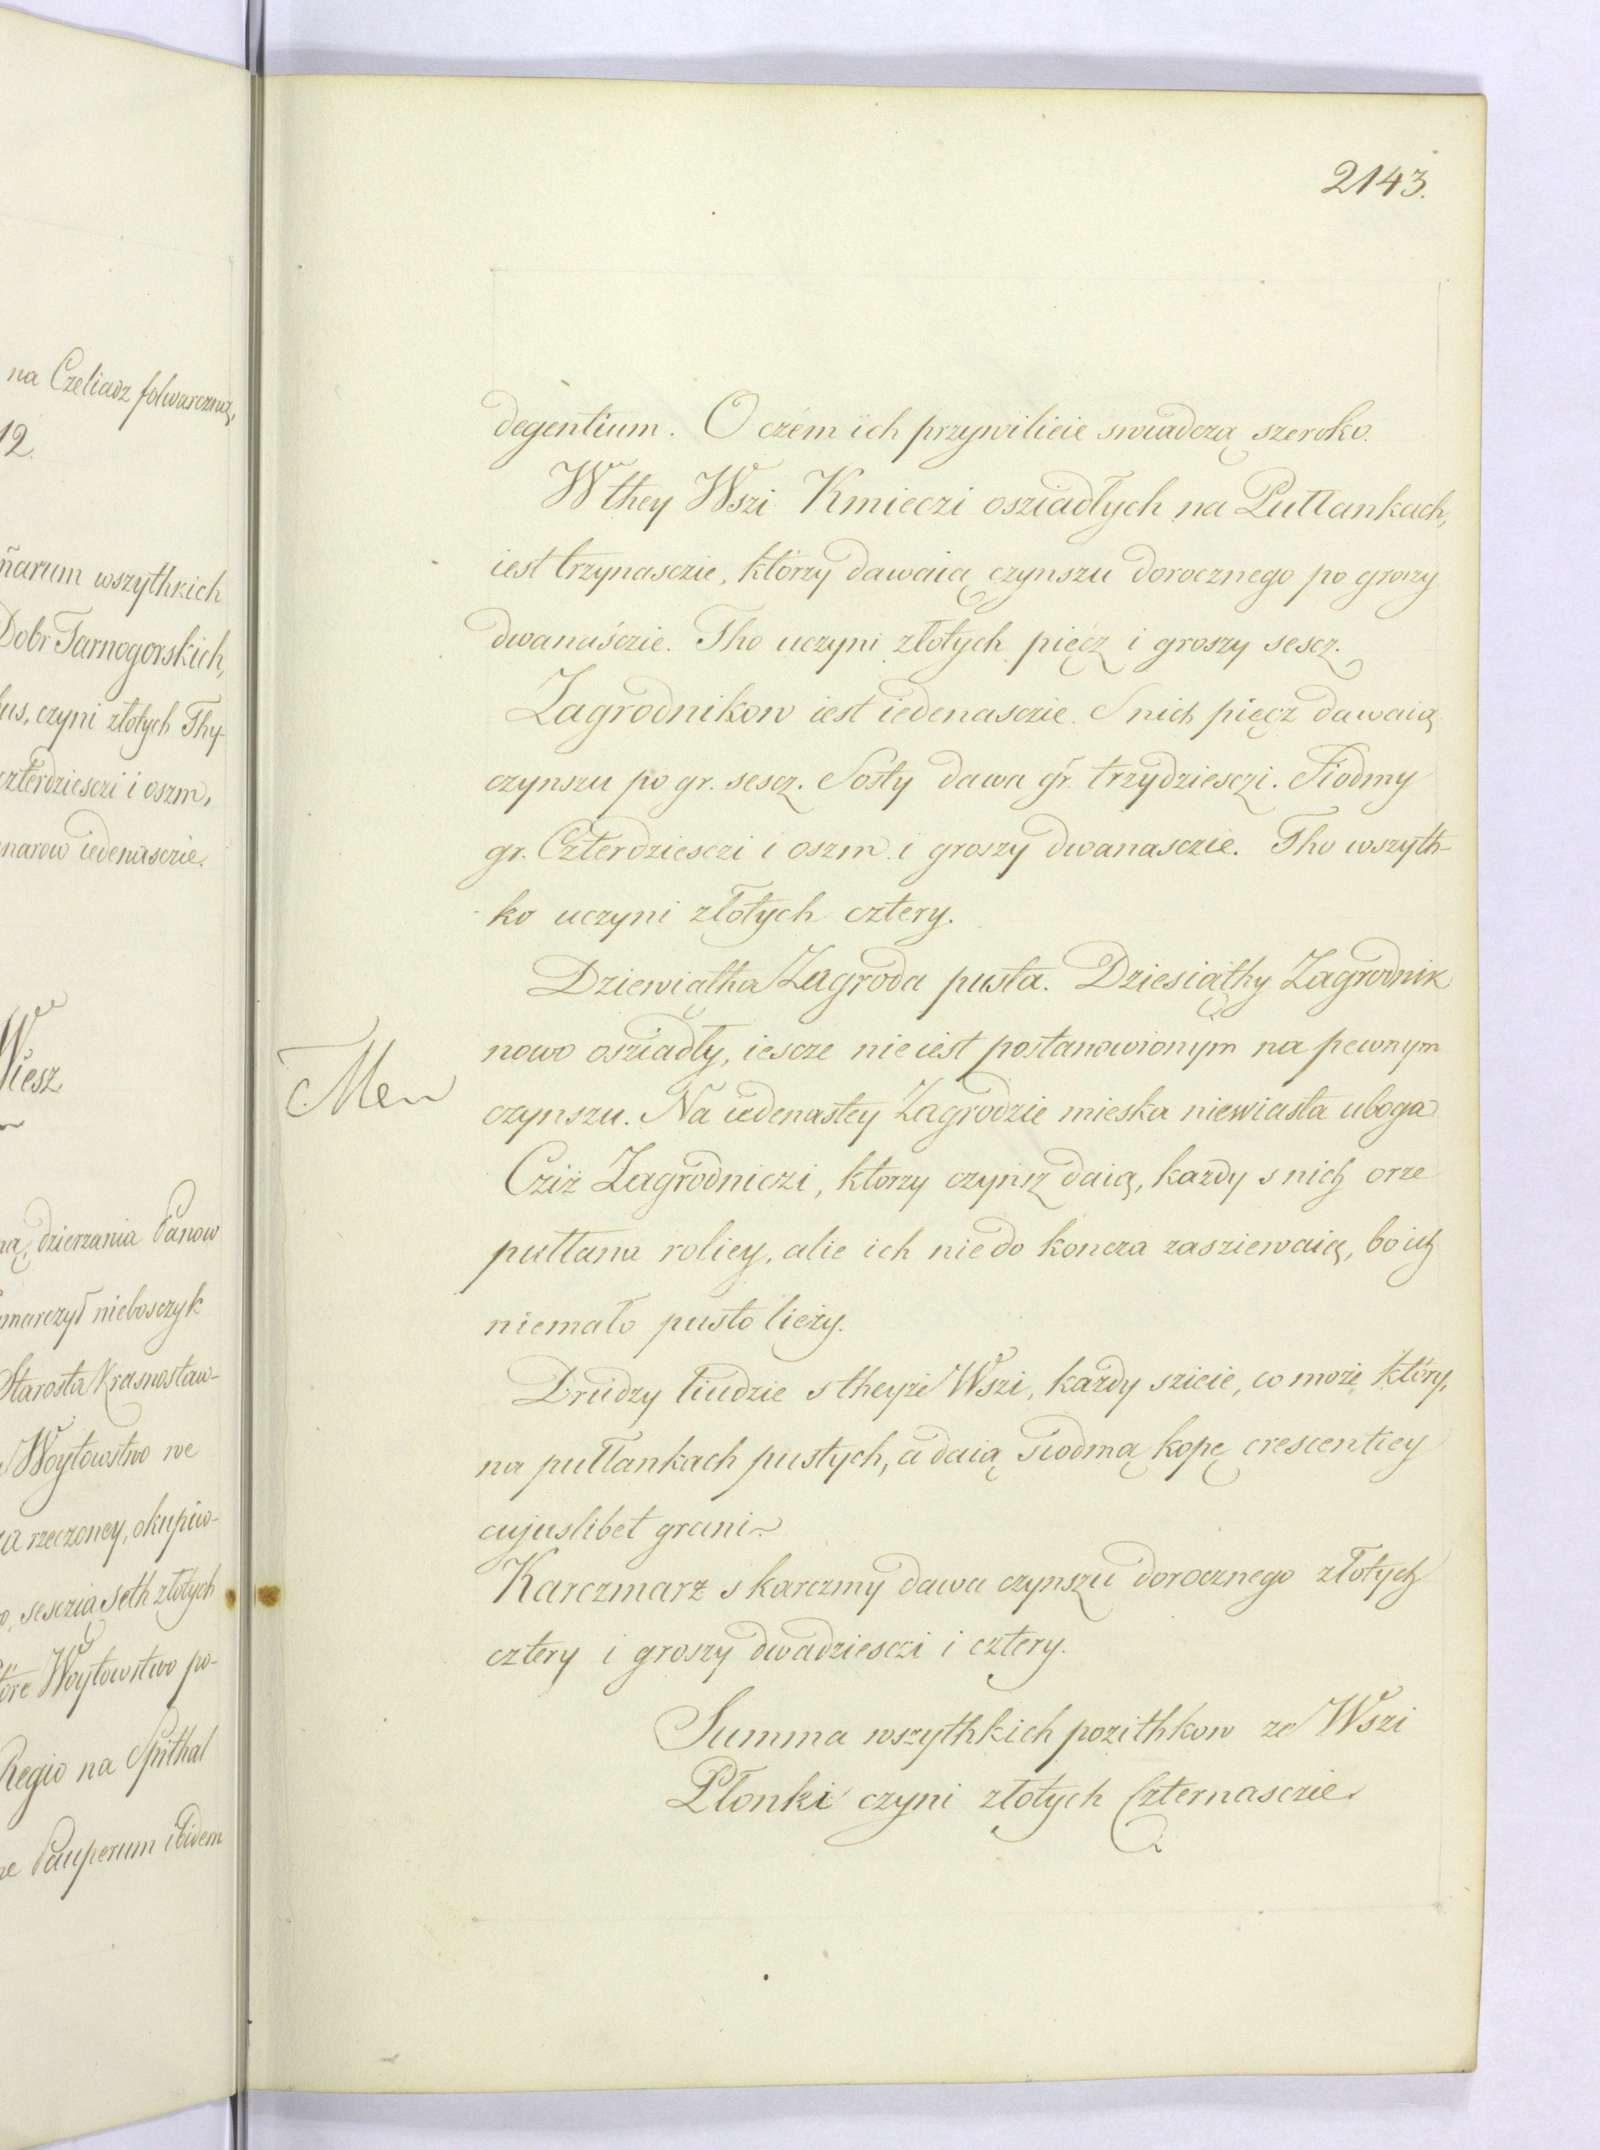 na Czeliadz folwarczną,
12.
narum wszythkich
Dobr Tarnogorskich,
bus, czyni złotych Thy-
czterdziesczi i oszm,
narow iedenasczie.
Wiesz
ną, dzierzania Panow
marczył niebosczyk
Starosta Krasnostaw-
Woytowstwo we
rzeczoney, okupiw-
sesczią seth złotych
tore Woytowstwo po-
Regio na Spithal
Pauperum ibidem
2143.
degentium. O czém ich przywilieie swiadczą szeroko.
W they Wszi Kmieczi osziadłych na Pułłankach,
iest trzynasczie, którzy dawaią czynszu dorocznego po groszy
dwanaśczie. Tho uczyni złotych pięcz i groszy sescz.
Zagrodnikow iest iedenasczie. S nich pięcz dawaią
czynszu po gr. sescz. Sosty dawa gr. trzydziesczi. Siodmy
gr. Czterdziesczi i oszm. i groszy dwanasczie. Tho wszyth-
ko uczyni złotych cztery.
Dziewiątha Zagroda pusta. Dziesiąthy Zagrodnik
nowo osziadły, iescze nie iest postanowionym na pewnym
czynszu. Na iedenastey Zagrodzie mieska niewiasta uboga
Cziż Zagrodniczi, ktorzy czynsz daią, kazdy s nich orze
pułłana roliey, alie ich nie do koncza zasziewaią, bo ich
niemało pusto lieży.
Drudzy liudzie s theyże Wszi, każdy szieie, co może który,
na pułłankach pustych, a daią siodmą kopę crescentiey
cujuslibet grani
Karczmarz s karczmy dawa czynszu dorocznego złotych
cztery i groszy dwadziesczi i cztery.
Summa wszythkich pozithkow ze Wszi
Płonki czyni złotych Czternasczie.